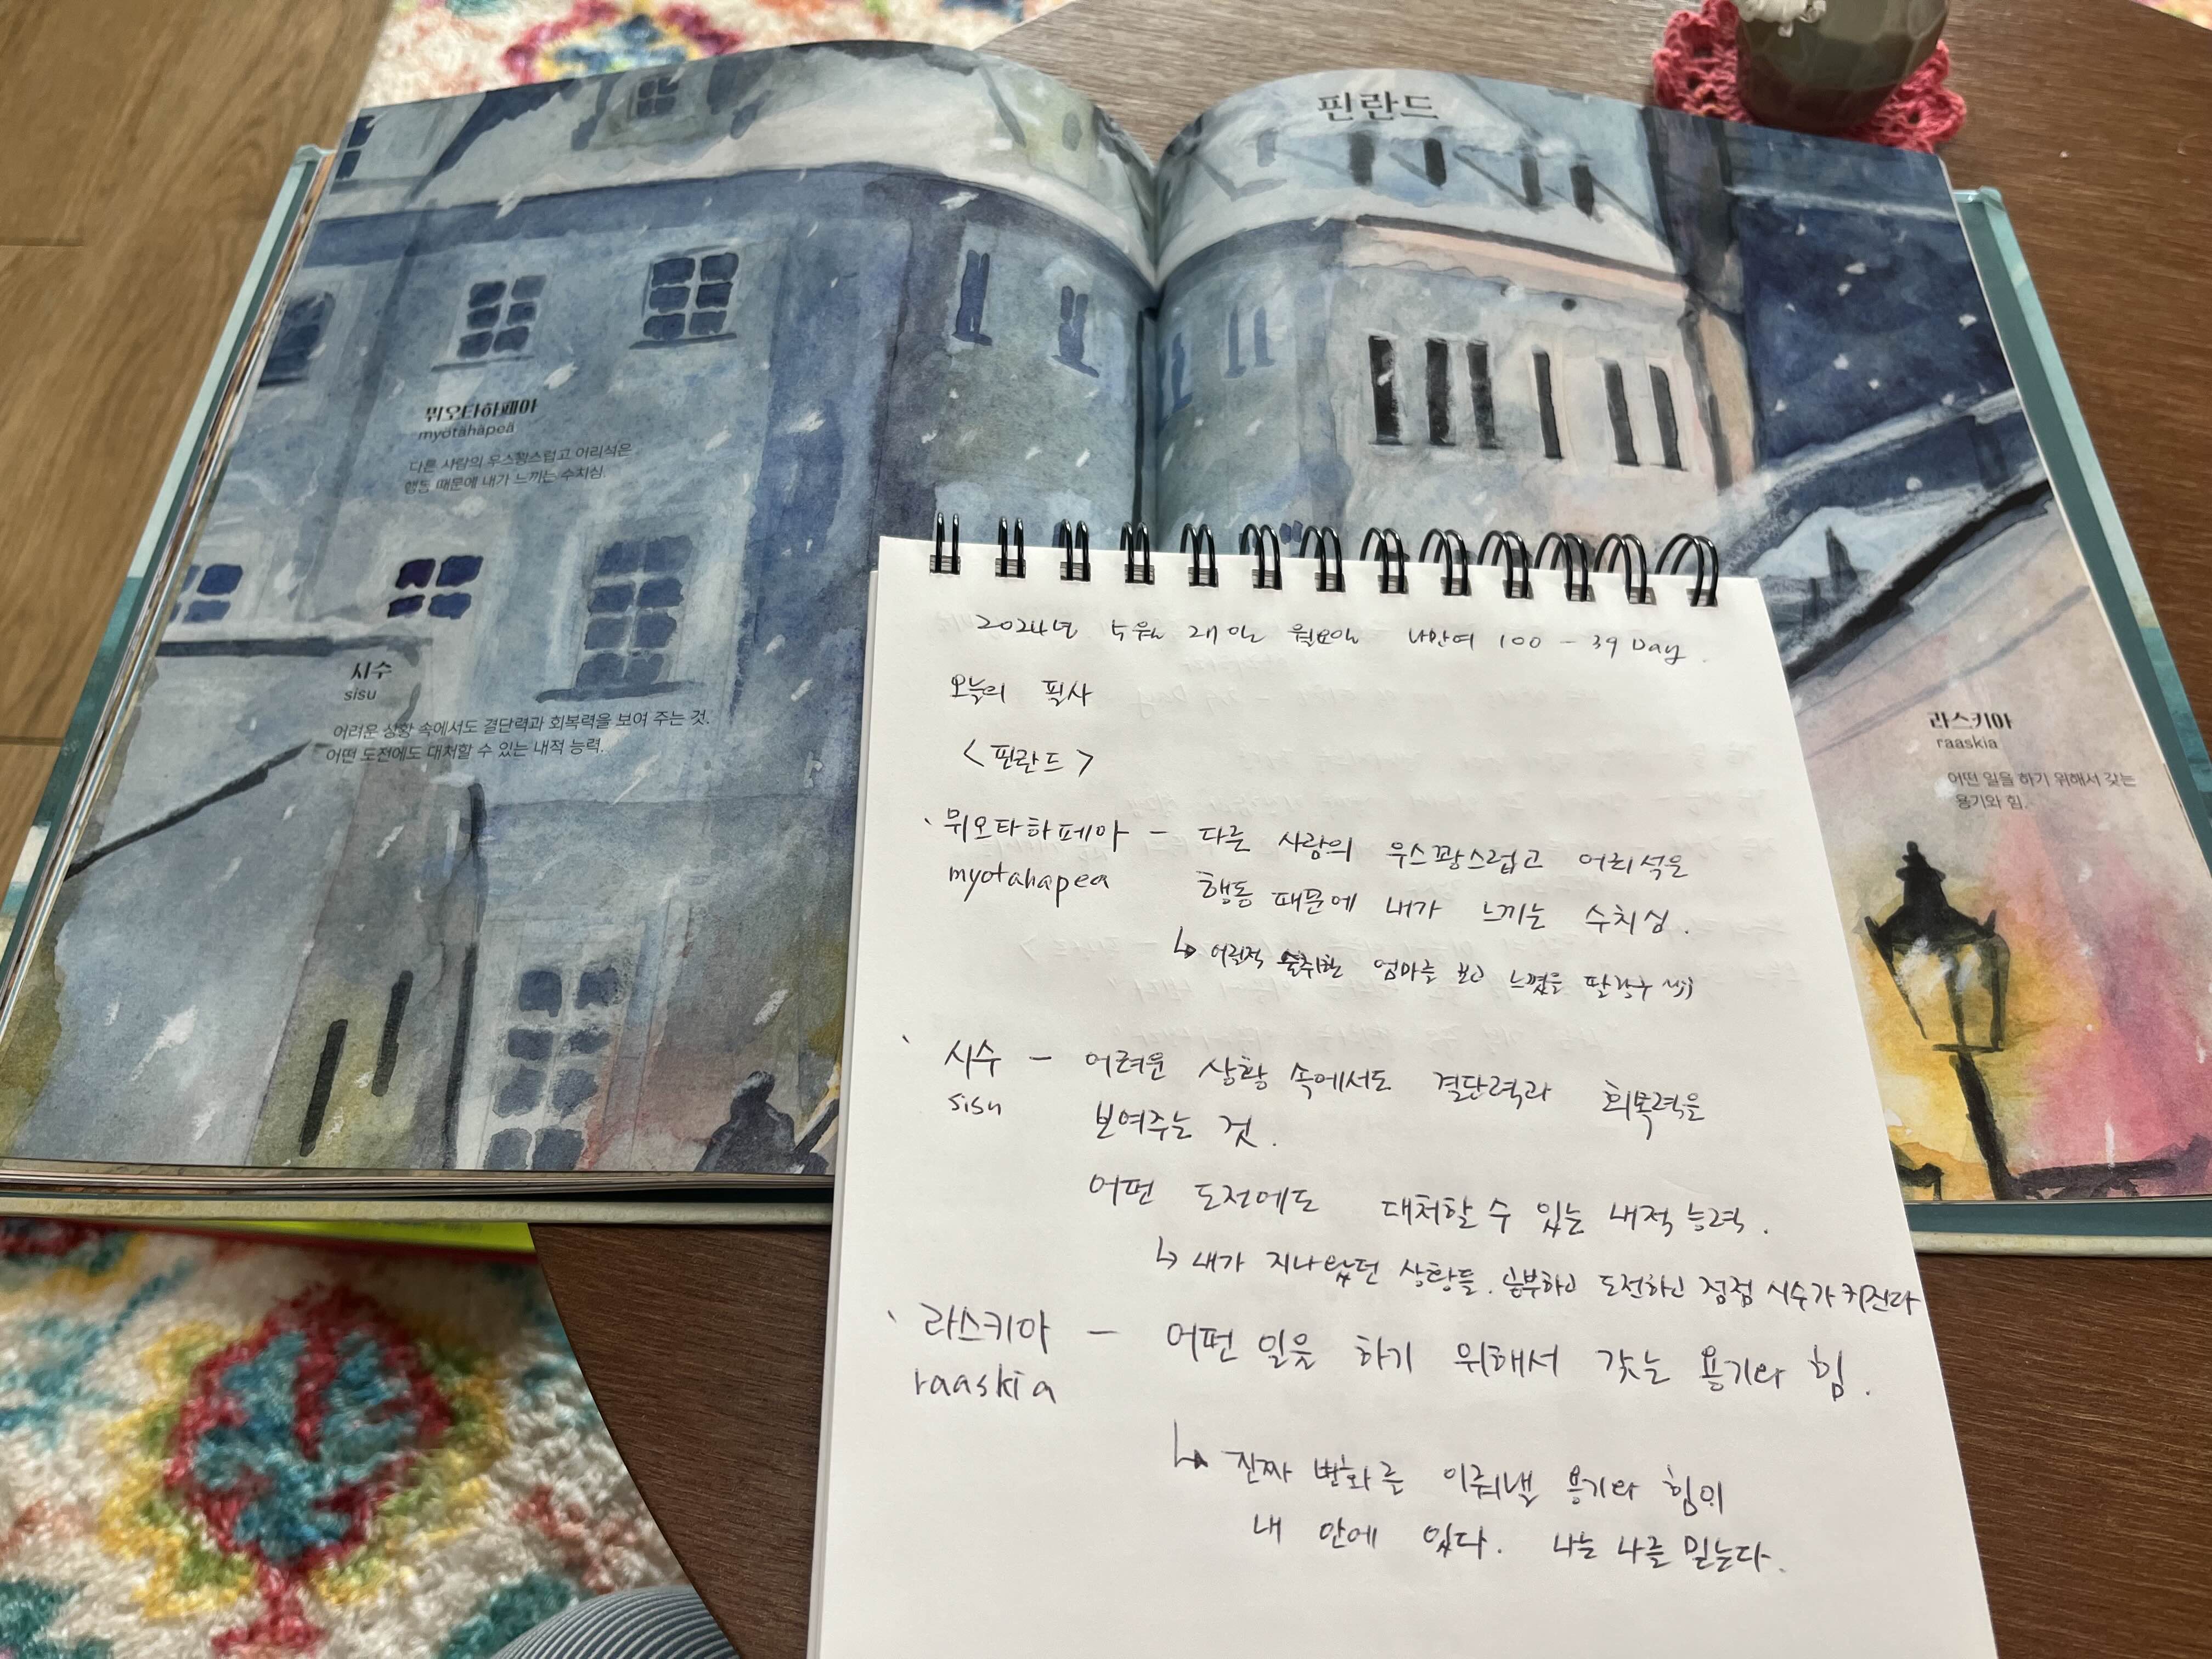 핀란드
뮈오타하페아
myötähäpeä
다른 사람의 우스꽝스럽고 어리석은
행동 때문에 내가 느끼는 수치심.
시수
sisu
어려운 상황 속에서도 결단력과 회복력을 보여 주는 것.
어떤 도전에도 대처할 수 있는 내적 능력.
라스키아
raaskia
어떤 일을 하기 위해서 갖는
용기와 힘.
2024년 월 일 월요일 100 - 39 Day.
오늘의 필사
<핀란드>
뮈오타하페아 - 다른 사람의 우스꽝스럽고 어리석은
myotahapea 행동 때문에 내가 느끼는 수치심.
↳ 어릴적 술취한 엄마를 보고 느꼈을 딸랑구
시수 - 어려운 상황 속에서도 결단력과 회복력을
sisu 보여주는 것.
어떤 도전에도 대처할 수 있는 내적 능력.
↳ 내가 지나왔던 상황들. 공부하고 도전하고 점점 시수가 커진다
라스키아 - 어떤 일을 하기 위해서 갖는 용기와 힘.
raaskia
↳ 진짜 변화를 이뤄낼 용기와 힘이
내 안에 있다. 나는 나를 믿는다.